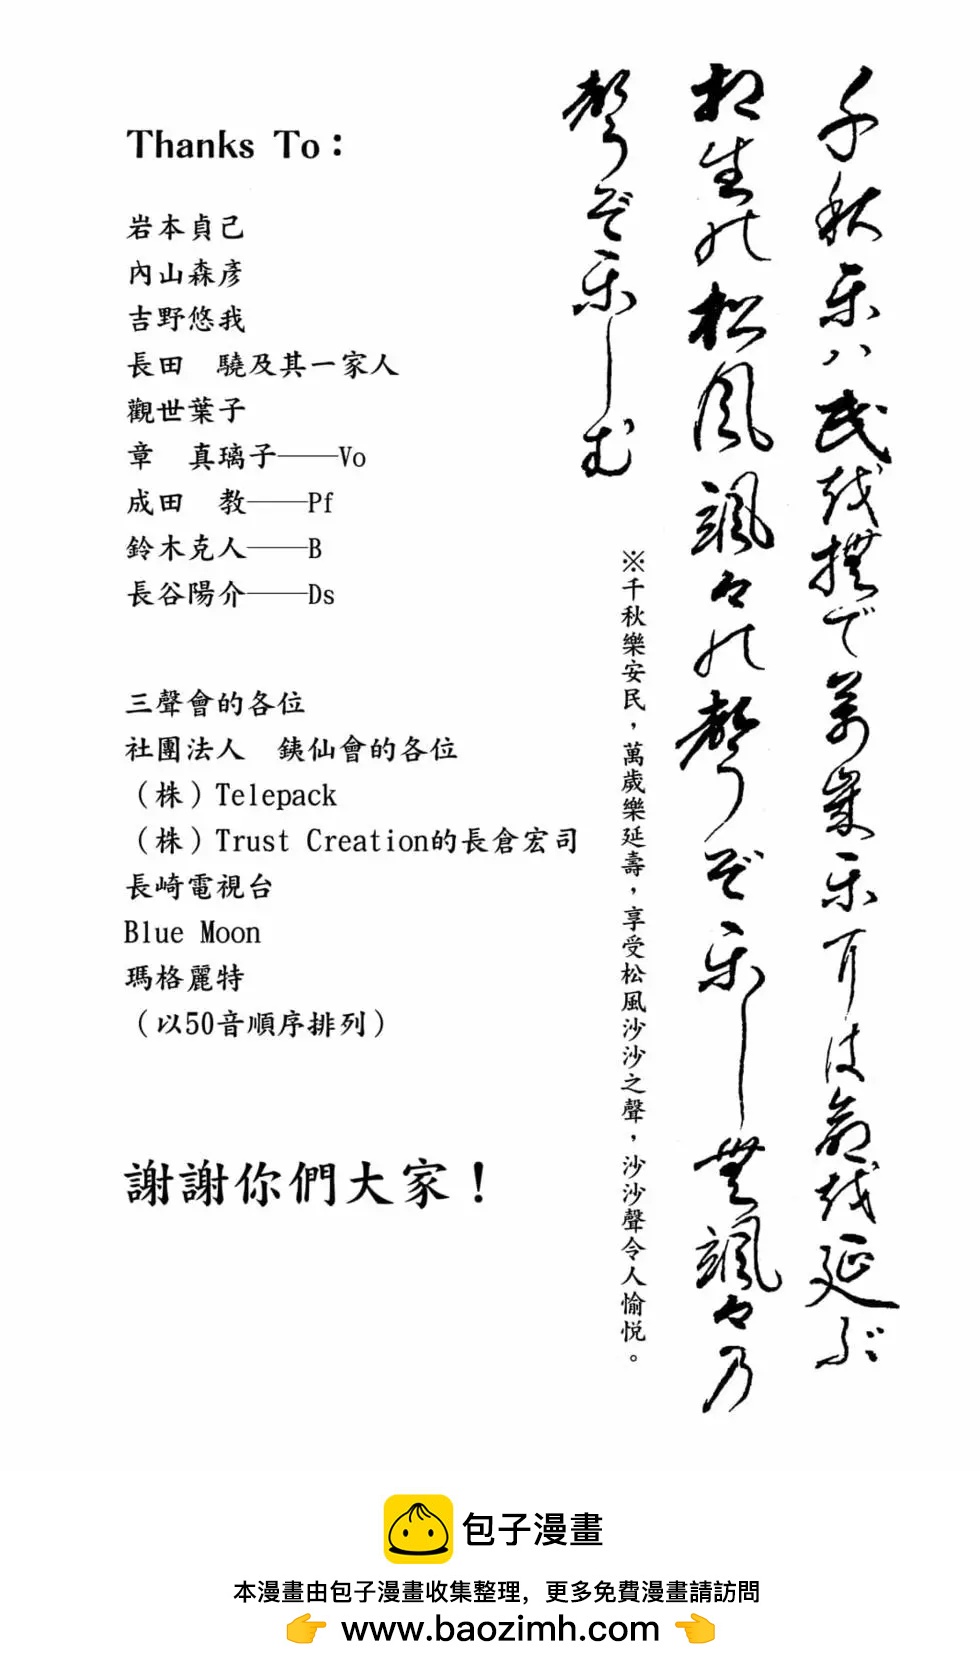 千秋楽ハ民越撫で萬歳楽耳は命越延ぶ
相生能松風颯々能聲ぞ楽し無颯々乃
聲ぞ楽しむ
※千秋樂安民，萬歲樂延壽，享受松風沙沙之聲，沙沙聲令人愉悅。
Thanks To：
岩本貞己
內山森彥
吉野悠我
長田　驍及其一家人
觀世葉子
章　真璃子——Vo
成田　教——Pf
鈴木克人——B
長谷陽介——Ds
三聲會的各位
社團法人　銕仙會的各位
（株）Telepack
（株）Trust Creation的長倉宏司
長崎電視台
Blue Moon
瑪格麗特
（以50音順序排列）
謝謝你們大家！
包子漫畫
本漫畫由包子漫畫收集整理，更多免費漫畫請訪問
👉 www.baozimh.com 👈